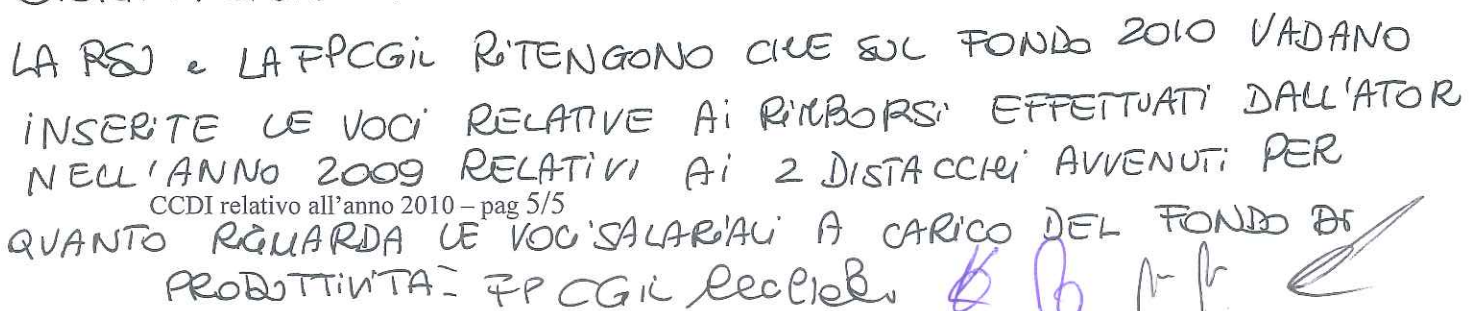 LA RSU e LA FPCGIL RITENGONO CHE SUL FONDO 2010 VADANO
INSERITE LE VOCI RELATIVE AI RIMBORSI EFFETTUATI DALL'ATOR
NELL'ANNO 2009 RELATIVI AI 2 DISTACCHI AVVENUTI PER
CCDI relativo all'anno 2010 – pag 5/5
QUANTO RIGUARDA LE VOCI SALARIALI A CARICO DEL FONDO DI
PRODUTTIVITA- FP CGIL